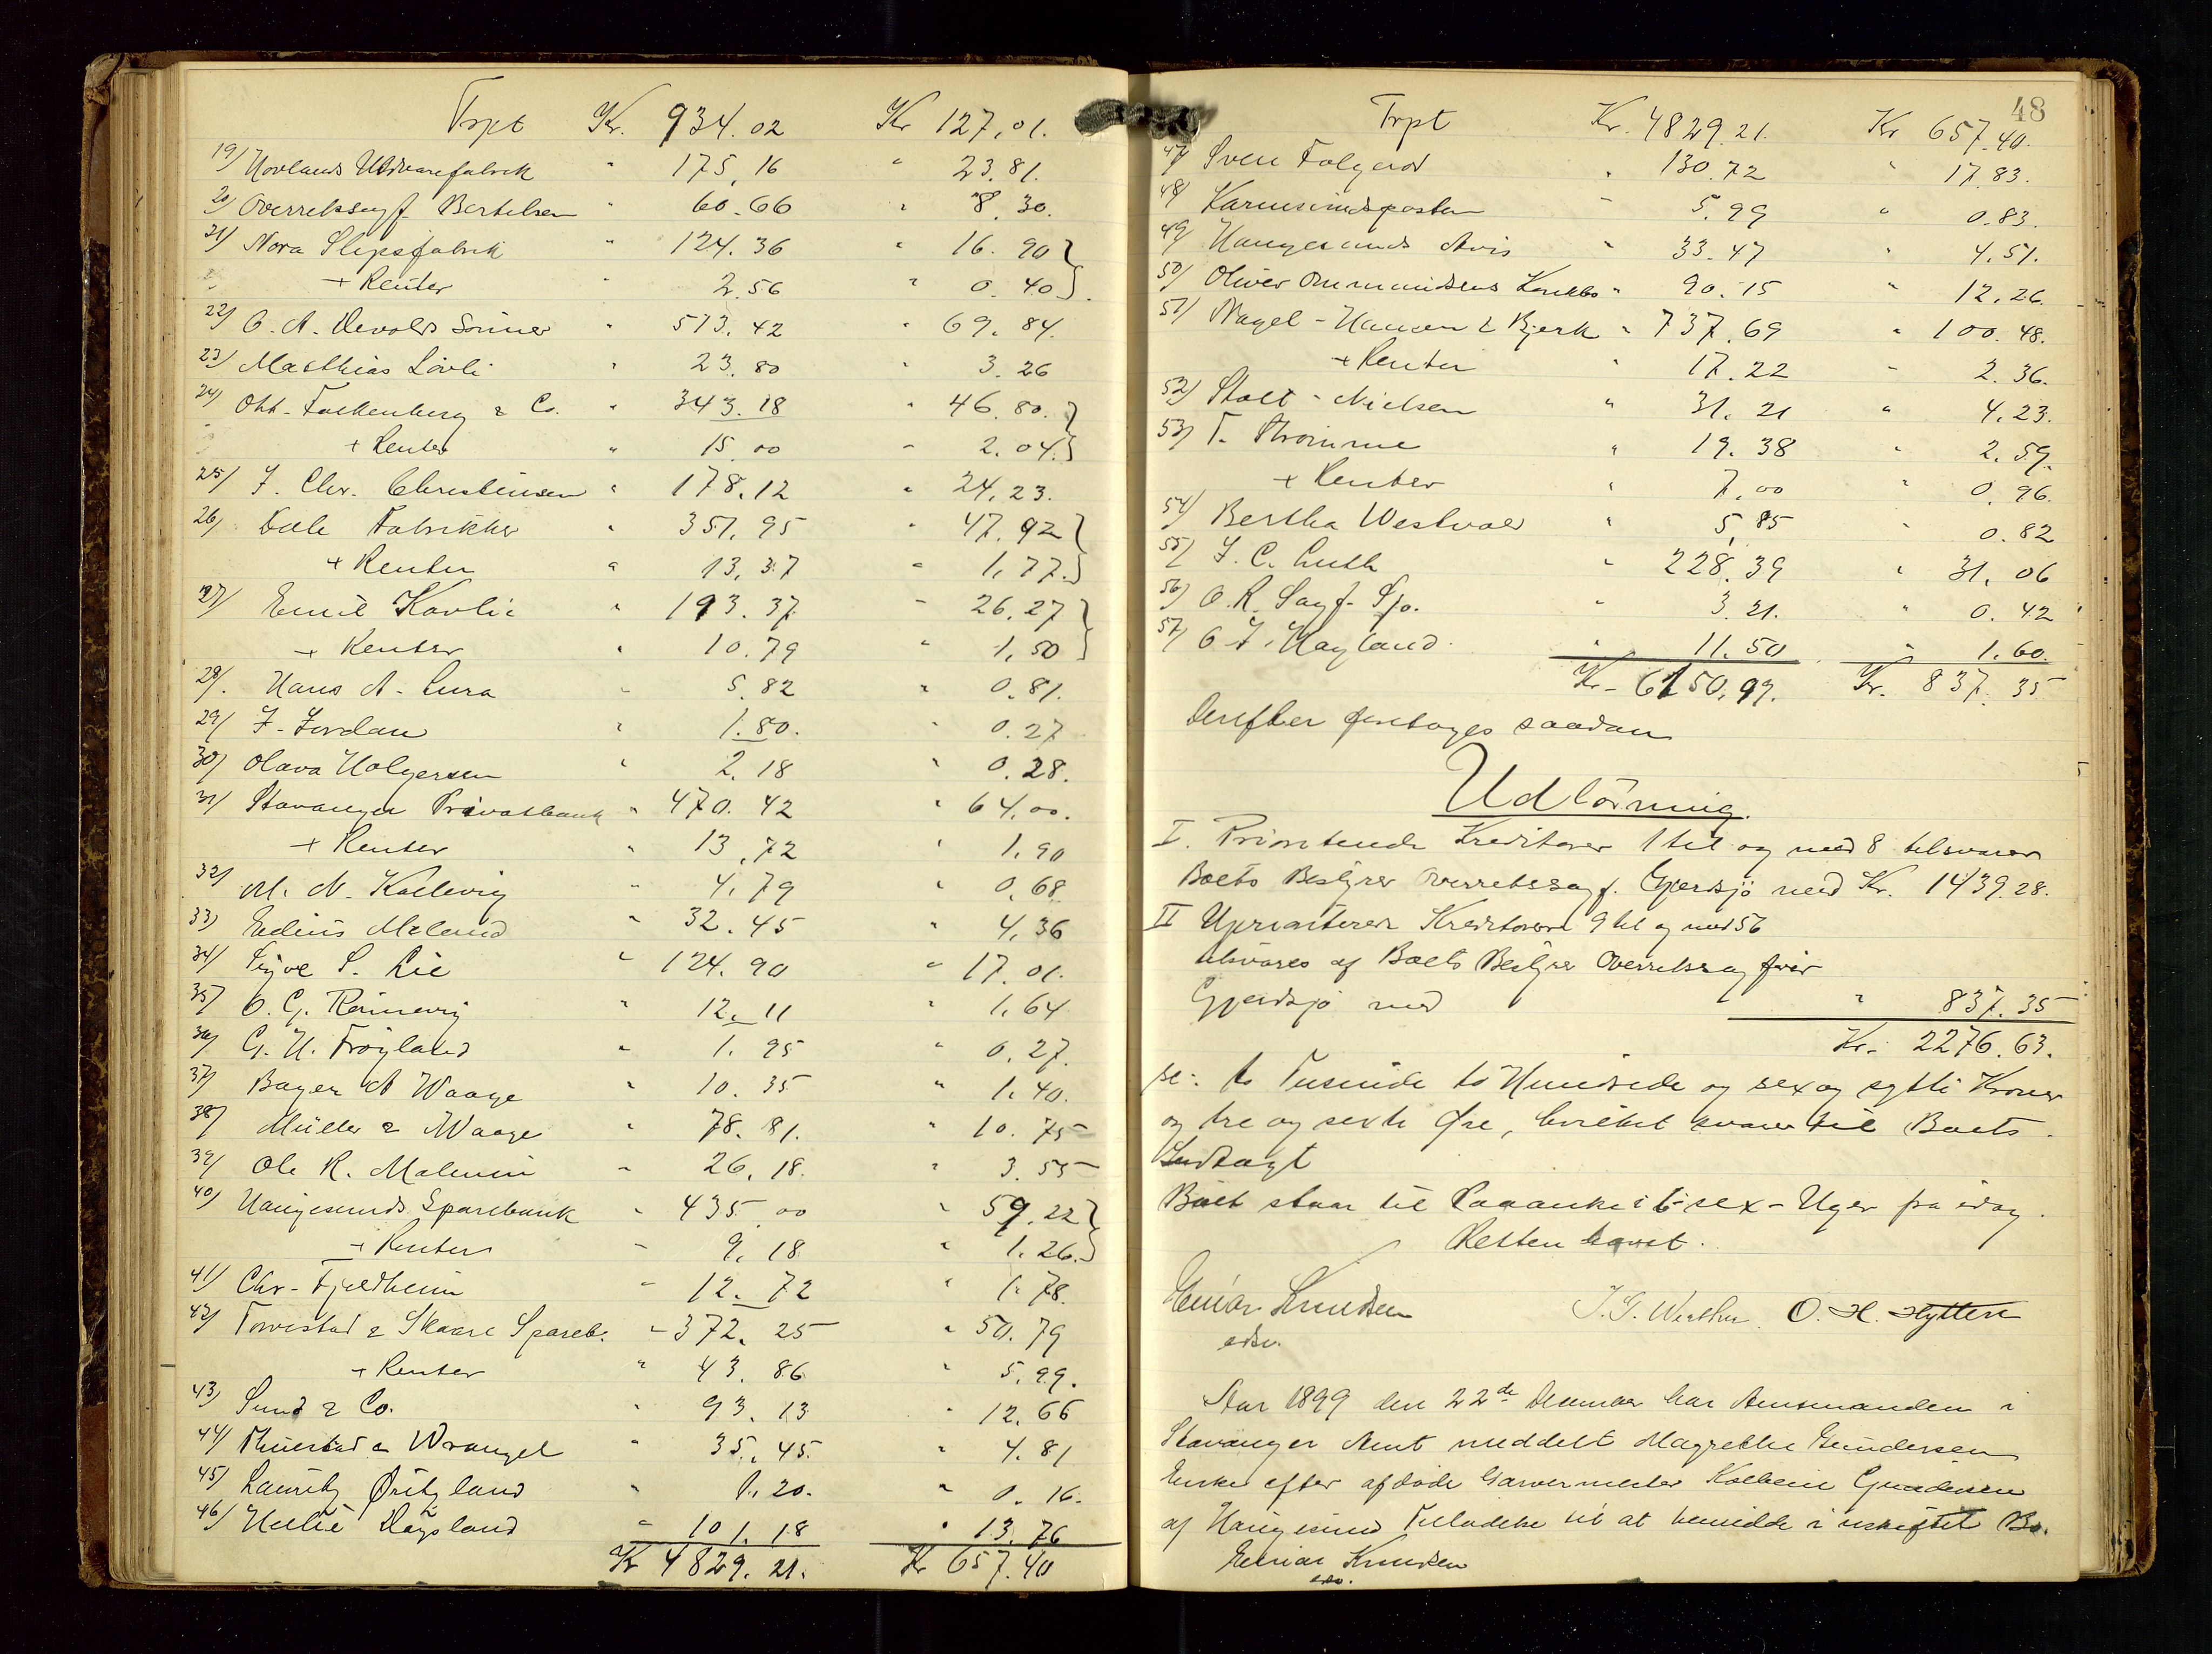 Trpt Kr. 934.02 Kr 127,01.
19/ Hovlands Uldvarefabrik " 175,16 " 23,81.
20/ Overretssagf. Bertelsen " 60.66 " 8.30.
21/ Nora Slipsfabrik " 124.36 " 16.90
+ Renter " 2.56 " 0.40
22/ O. A. Devolds Sönner " 513.42 " 69.84.
23/ Matthias Lövli " 23.80 " 3.26
24/ Ott. Falkenberg & Co. " 343.18 " 46.80.
+ Renter " 15.00 " 2.04.
25/ F. Chr. Christensen " 178.12 " 24,23.
26/ Dale Fabrikker " 351,95 " 47.92
+ Renter " 13,37 " 1,77.
27/ Emil Kavli " 193.37 " 26.27
+ Renter " 10.79 " 1,50
28/. Hans A. Lura " 5.82 " 0.81.
29/ F. Jordan " 1.80. " 0.27
30/ Olava Holgersen " 2.18 " 0.28.
31/ Stavanger Privatbank " 470.42 " 64,00.
+ Renter " 13,72 " 1,90
32/ M. N. Kallevig " 4,79 " 0,68
33/ Edius Meland " 32.45 " 4,36
34/ Sjove S. Lie " 124.90 " 17.01.
35/ O. G. Rönnevig " 12.11 " 1,64
36/ G. H. Fröyland " 1.95 " 0,27.
37/ Bager A Waage " 10.35 " 1.40.
38/ Müller & Waage " 78.81. " 10.75
39/ Ole R. Malmin " 26,18. " 3.55
40/ Haugesunds Sparebank " 435.00 " 59,22
+ Renter " 9,18 " 1.26.
41/ Chr. Fjeldheim " 12.72 " 1.78.
42/ Torvestad & Skaare Spareb. " 372.25 " 50.79
+ Renter " 43.86 " 5,99.
43/ Sund & Co. " 93.13 " 12.66
44/ Thuestad & Wrangel " 35.45. " 4.81
45/ Lauritz Øritzland " 1.20. " 0.16.
46/ Hellie Høysland " 101.18 " 13.76
Kr 4829.21. Kr 657.40
48
Trpt Kr. 4829.21. Kr 657.40.
47/ Sven Falgerød " 130.72 " 17.83.
48/ Karmsundsposten " 5.99 " 0.83.
49/ Haugesunds Avis " 33.47 " 4,51.
50/ Oliver Ommundsens Konkbo " 90.15 " 12,26.
51/ Nagel-Hansen & Bjerk " 737.69 " 100.48.
+ Renter " 17.22 " 2.36.
52/ Stolt-Nielsen " 31.21 " 4,23.
53/ T. Thrømme " 19.38 " 2.59.
+ Renter " 7.00 " 0.96.
54/ Bertha Westvold " 5,85 " 0.82
55/ F. C. Luth " 228.39 " 31,06
56/ O.R. Sagf. Sjo. " 3.21. " 0.42
57/ O F. Hagland. " 11.50 " 1.60.
Kr. 6150.99. Kr. 837.35
Derefter foretoges saadan
Udlödning.
I. Prioriterede Kreditorer 1 til og med 8 tilsvares
Boets Bestyrer Overretssagf. Gjerdsjö med Kr. 1439.28.
II Uprioriterede Kreditorer 9 til og med 56
tilsvares af Boets Bestyrer Overretssagförer
Gjerdsjö med " 837.35
Kr. 2276.63.
sc: to Tusinde to Hundrede og sex og sytti Kroner
og tre og sexti Øre, hvilket svarer til Boets
Indtægt
Boet staar til Paaanke i 6-sex-Uger fra idag.
Retten hævet.
Einar Knudsen J. G. Werther O. H. Hytten
edsv.
Aar 1899 den 22de December har Amtmanden i
Stavanger Amt meddelt Magrethe Gundersen
Enke efter afdöde Garvermester Kolbein Gundersen
af Haugesund Tilladelse til at hensidde i uskiftet Bo.
Einar Knudsen
edsv.